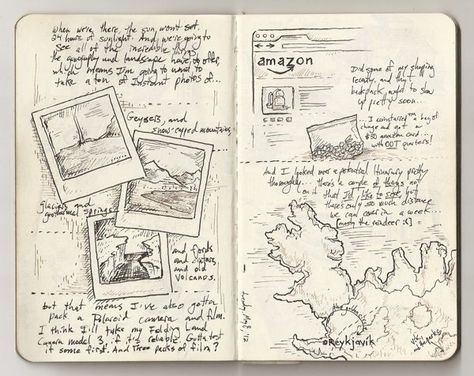 when we're there, the sun won't set.
24 hours of sunlight. And we're going to
see all of the incredible things
the geography and landscape have to offer,
which means I'm going to want to
take a ton of Instant photos of...
Geysers, and
snow-capped mountains,
glaciers and
geothermal springs
and fjords
and
and old
volcanos.
but that means I've also gotta
pack a Polaroid camera and film.
I think I'll take my Folding Land
Camera model 3, if it's reliable. Gotta test
it some first. And Three packs of film?
amazon
Did some of my shopping
recently, and the
backpack ought to show
up pretty soon...
... I coinstarred bag of
change and got
$50 amazon card...
with OUT quarters!
And I looked over a potential itinerary pretty
thoroughly... there's a couple of things not
on it that I'd like to see, but
there's only so much distance
we can cover in a week...
Reykjavik